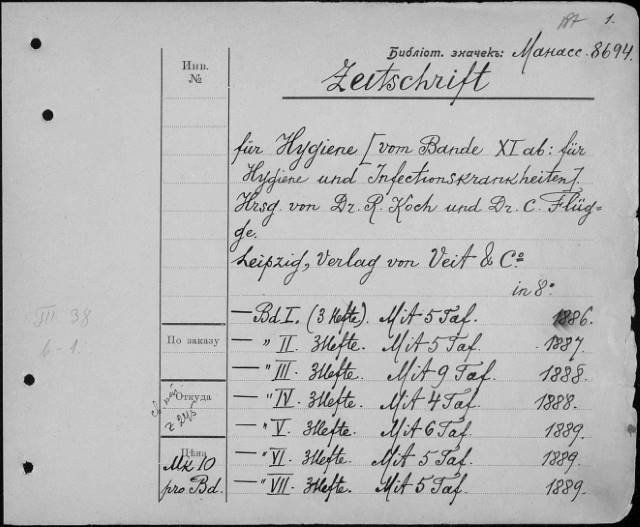 187 1.
Библіот. значекъ: Манасс. 8694.
Инв.
№
Zeitschrift
für Hygiene [vom Bande XI ab: für
Hygiene und Infectionskrankheiten].
Hrsg. von Dr. R. Koch und Dr. C. Flüg=
ge.
Leipzig, Verlag von Veit & Co
in 8º
III 38
6-1.
По заказу
Откуда
Цѣна
Mk 10
pro Bd.
— Bd I. (3 Hefte). Mit 5 Taf. 1886.
— " II. 3 Hefte. Mit 5 Taf. 1887.
— " III. 3 Hefte. Mit 9 Taf. 1888.
— " IV. 3 Hefte. Mit 4 Taf. 1888.
— " V. 3 Hefte. Mit 6 Taf. 1889.
— " VI. 3 Hefte. Mit 5 Taf. 1889.
— " VII. 3 Hefte. Mit 5 Taf. 1889.